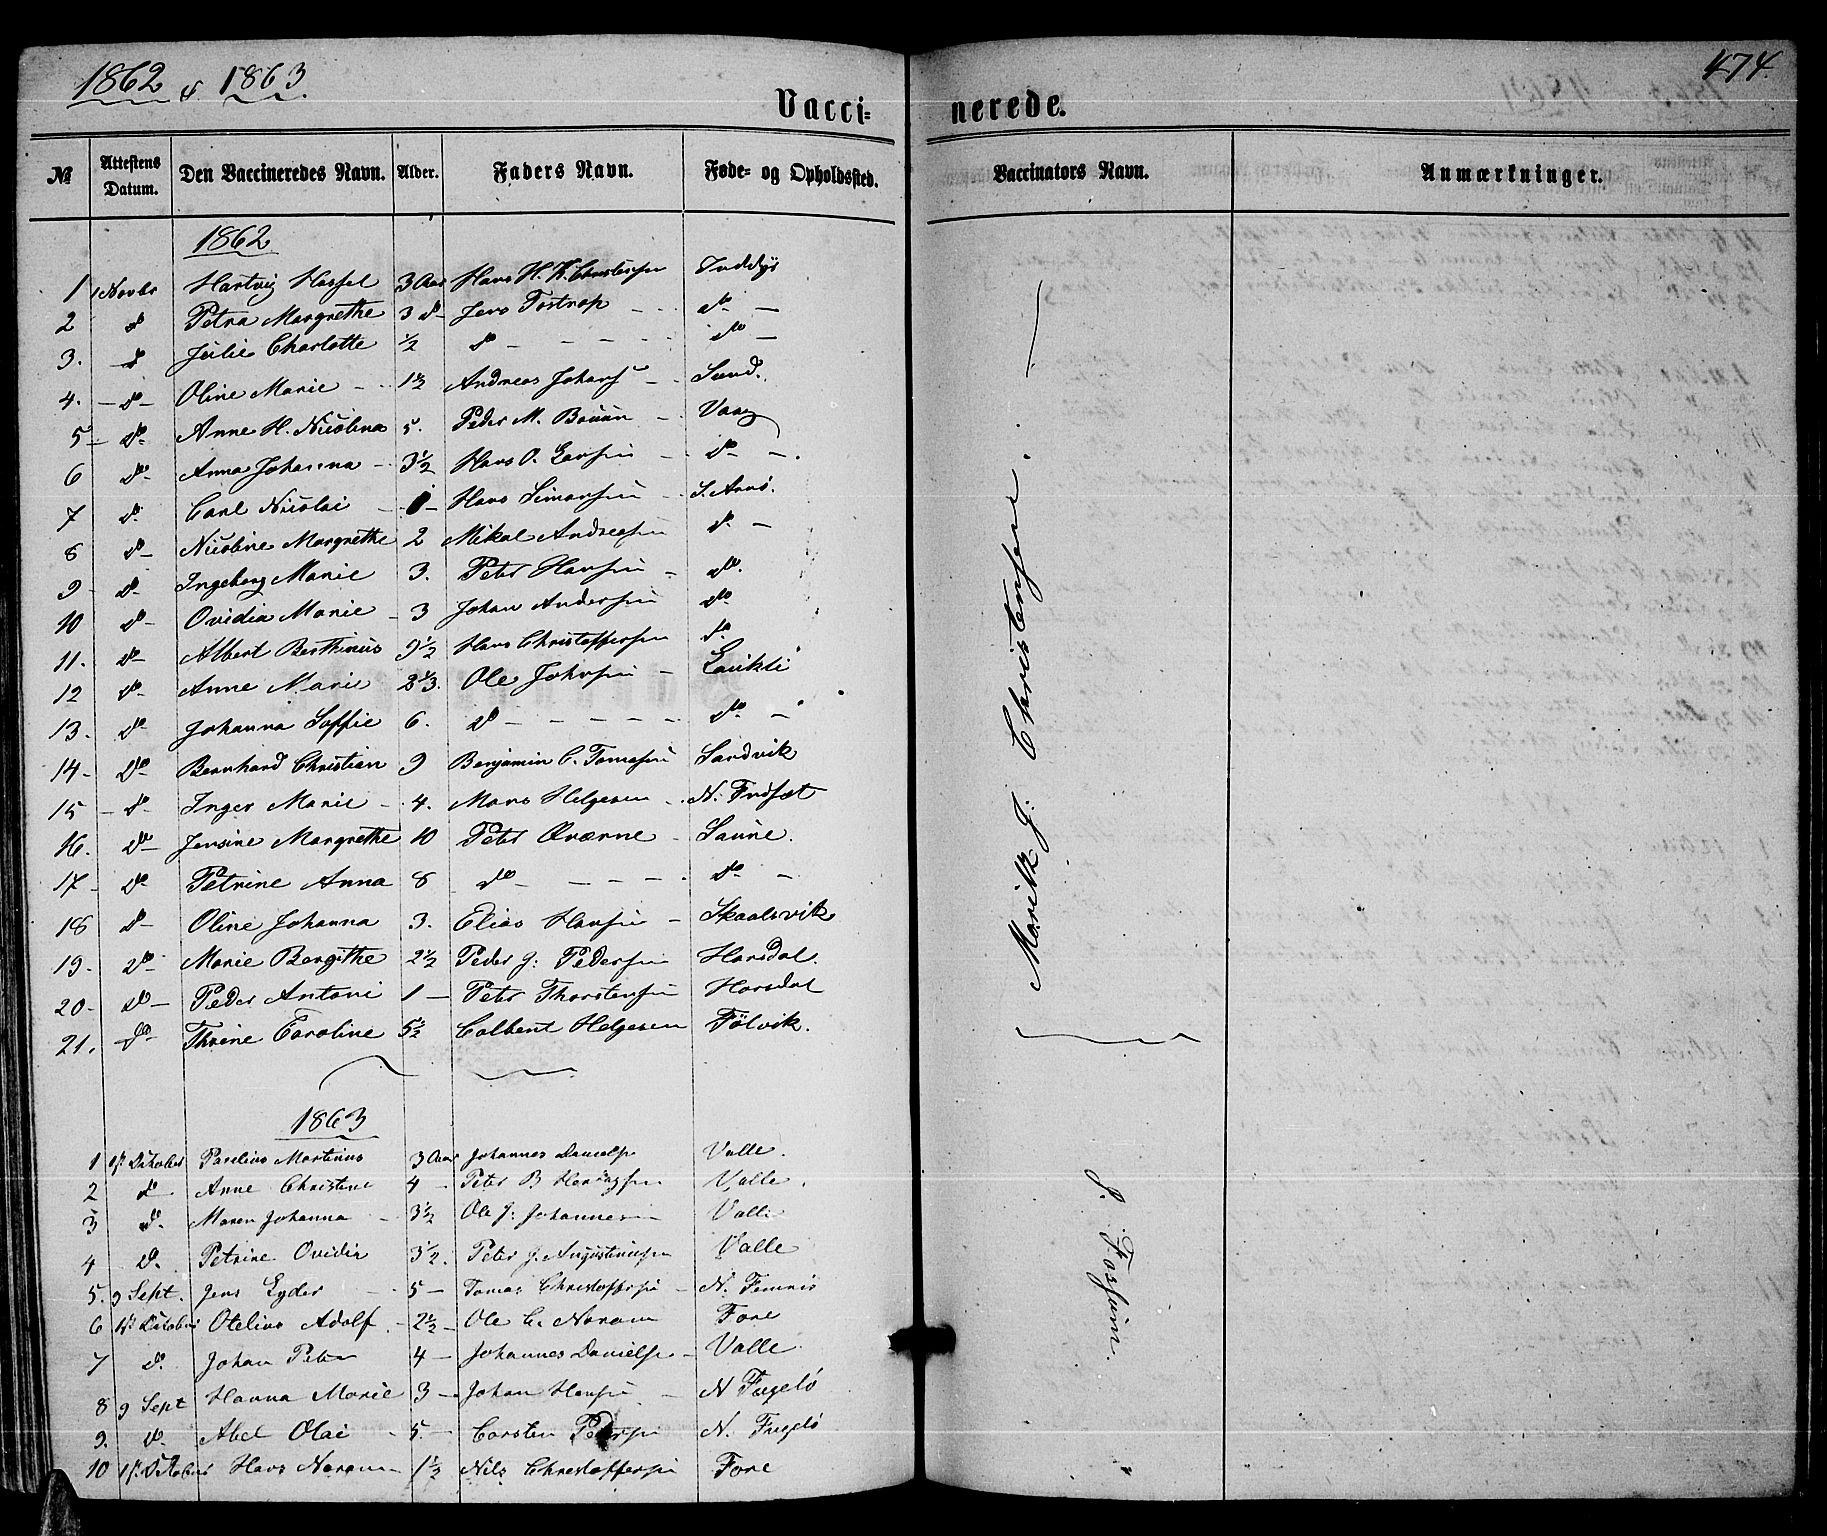 1862 & 1863.
474.
Vacci- nerede.
№ Attestens Datum. Den Vaccineredes Navn. Alder. Faders Navn. Føde- og Opholdssted. Vaccinators Navn. Anmærkninger.
1862
1 1 Novbr Hartvig Hassel 3 Aar Hans H. K. Christensen Inddyr
2 do Petra Margrethe 3 do Jens Tostrop do
3. do Julie Charlotte ½ do do
4. do Oline Marie 1½ Andreas Johans Sund.
5 do Anne H. Nicolina 5. Peder M. Vaag
6 do Anna Johanna 3½ Hans O. do
7 do Carl Nicolai 1 Hans Simonsen S. Arnö.
8 do Nicoline Margrethe 2 Mikal Andreasen do
9 do Ingeborg Marie 3. Peter Hansen do
10 do Ovidia Marie 3 Johan Andersen do
11. do Albert Berthinus 9½ Hans Christoffersen do
12 do Anne Marie Ole Johnsen
13. do Johanna Soffie 6. do do
14 do Bernhard Christian 9 Benjamin C. Tomesen Sandvik
15 do Inger Marie 4. Mons Helgesen N.
16. do Jensine Margrethe 10 Peter Qværne
17 do Petrine Anna 8 do do
18 do Oline Johanna 3. Elias Hansen Skaalsvik
19. do Marie Bergithe 2½ Peder J: Pedersen Horsdal.
20 do Peder Antoni 1 Peter Thorstensen Horsdal
21. do Thrine Caroline 5½ Colbent Helgesen Fölvik.
Moritz J: Christensen.
1863
1 Oktober Parelius Martinus 3 Aar Johannes Danielsen Valle.
2 do Anne Christine 4 Peter B Valle.
3 do Maren Johanna 3½ Ole J: Johannesen Valle
4 do Petrine Ovidia 3½ Peter J. Augustinusen Valle
5. 9 Sept. Jens Eyder 5 Tomas Christoffersen N.
6 Oktober Otelius Adolf 2½ Ole C. Noram Fore
7 do Johan Peter 4 Johannes Danielsen Valle
8 9 Sept Hanna Marie 3 Johan Hansen N Fugelö
9. do Abel Olai 5. Carsten Pedersen N. Fugelö
10 Oktober Hans Noram 1½ Nils Christoffersen Fore
J.